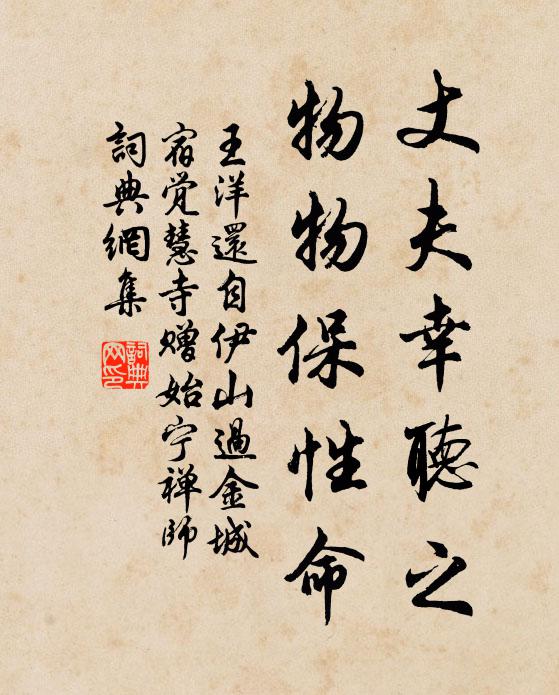 丈夫幸聽之
物物保性命
王洋還自伊山過金城
宿觉慧寺赠始宁禅師
詞典網集
詞典
网印